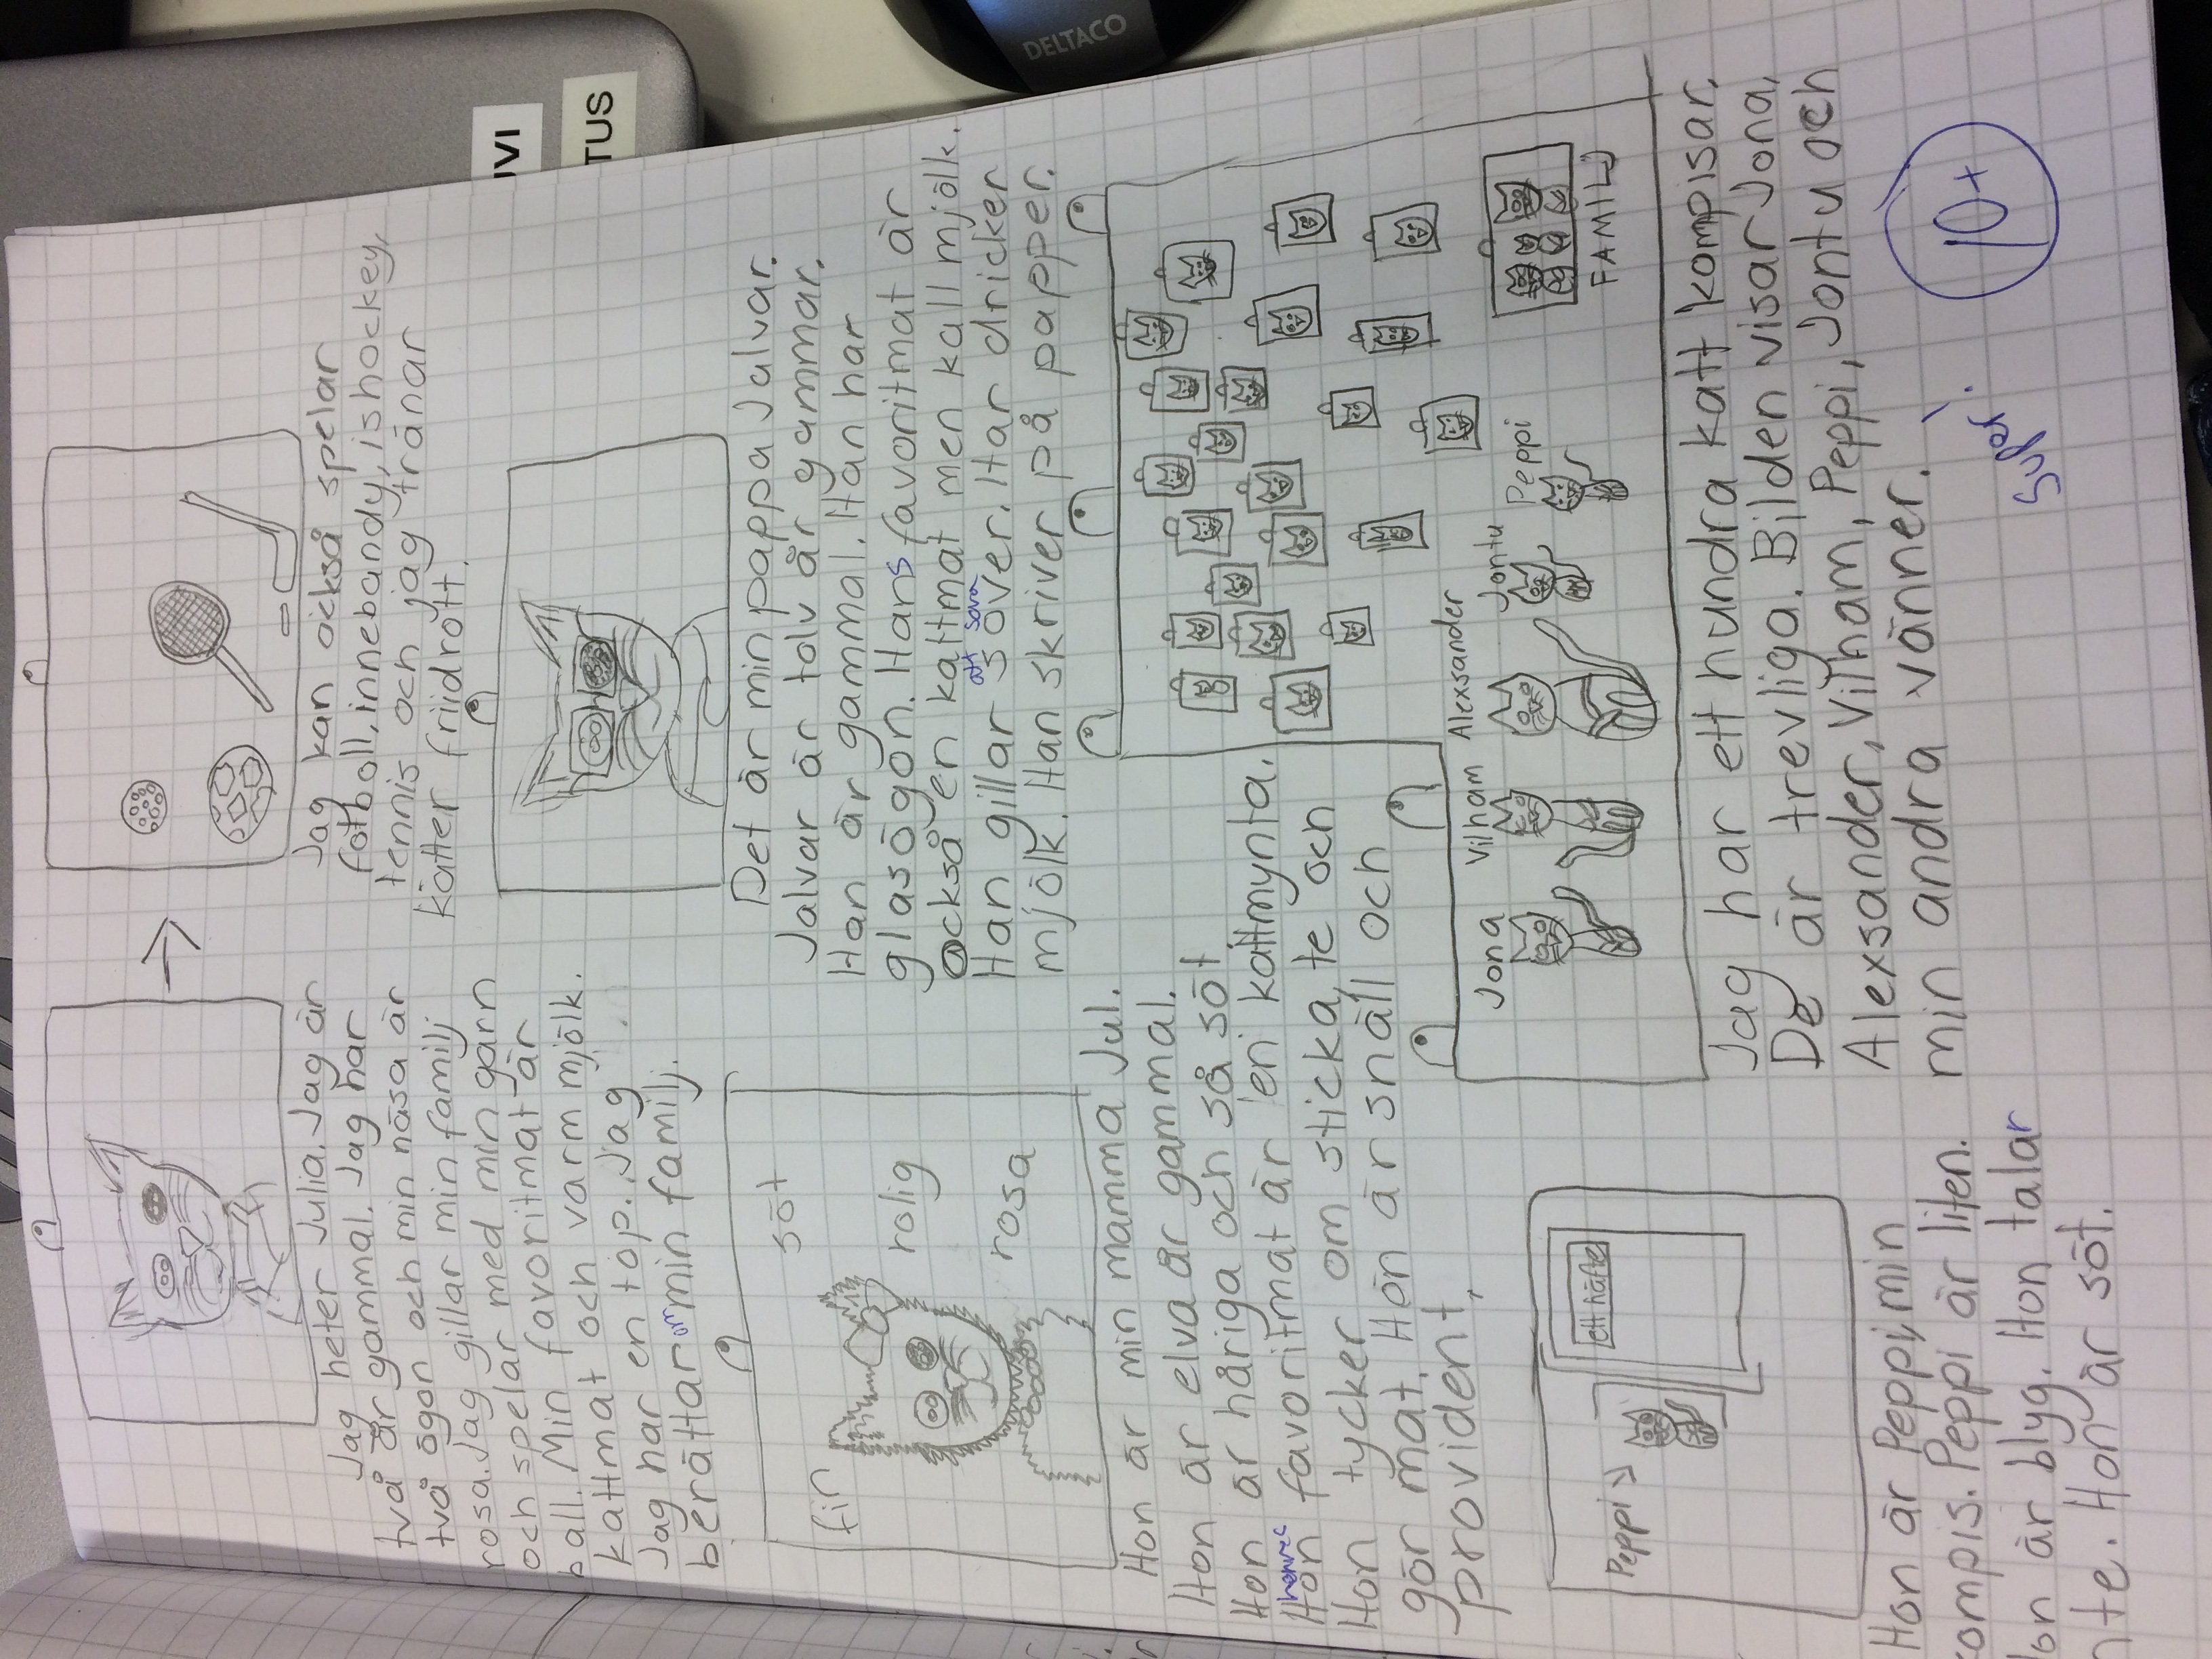 Jag heter Julia. Jag är
två år gammal. Jag har
två ögon och min näsa är
rosa. Jag gillar min familj
och spelar med min garn
ball. Min favoritmat är
kattmat och varm mjölk.
Jag har en top. Jag
berättar om min familj.
Jag kan också spelar
fotboll, innebandy, ishockey,
tennis och jag tränar
katter friidrott.
fin
söt
rolig
rosa
Hon är min mamma Jul.
Hon är elva år gammal.
Hon är håriga och så söt
Hon favoritmat är en kattmynta.
hennes
Hon tycker om sticka, te och
gör mat. Hon är snäll och
provident.
Det är min pappa Jalvar.
Jalvar är tolv år gammar.
Han är gammal. Han har
glasögon. Hans favoritmat är
också en kattmat men kall mjölk.
Han gillar söver. Han dricker
att sova
mjölk. Han skriver på papper.
Peppi
ett häfte
Hon är Peppi, min
kompis. Peppi är liten.
Hon är blyg. Hon talar
inte. Hon är söt.
Jona
Vilham
Alexsander
Jontu
Peppi
FAMILJ
Jag har ett hundra katt kompisar.
De är trevliga. Bilden visar Jona,
Alexsander, Vilham, Peppi, Jontu och
min andra vänner.
10+
DELTACO
UVI
TUS